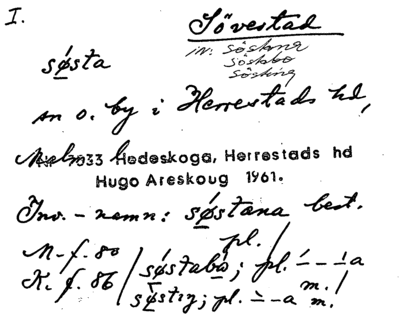 I.
Sövestad
in: söstana
söstabo
sösting
sø̄sta
sn o. by i Herrestads hd,
Malm. l.
1033 Hedeskoga, Herrestads hd
Hugo Areskoug 1961.
Inv.-namn: søstana best.
pl.
M. f. 80
K. f. 86
søstabo; pl. – – ́ – a
m.
søstiŋ; pl. – – a m.